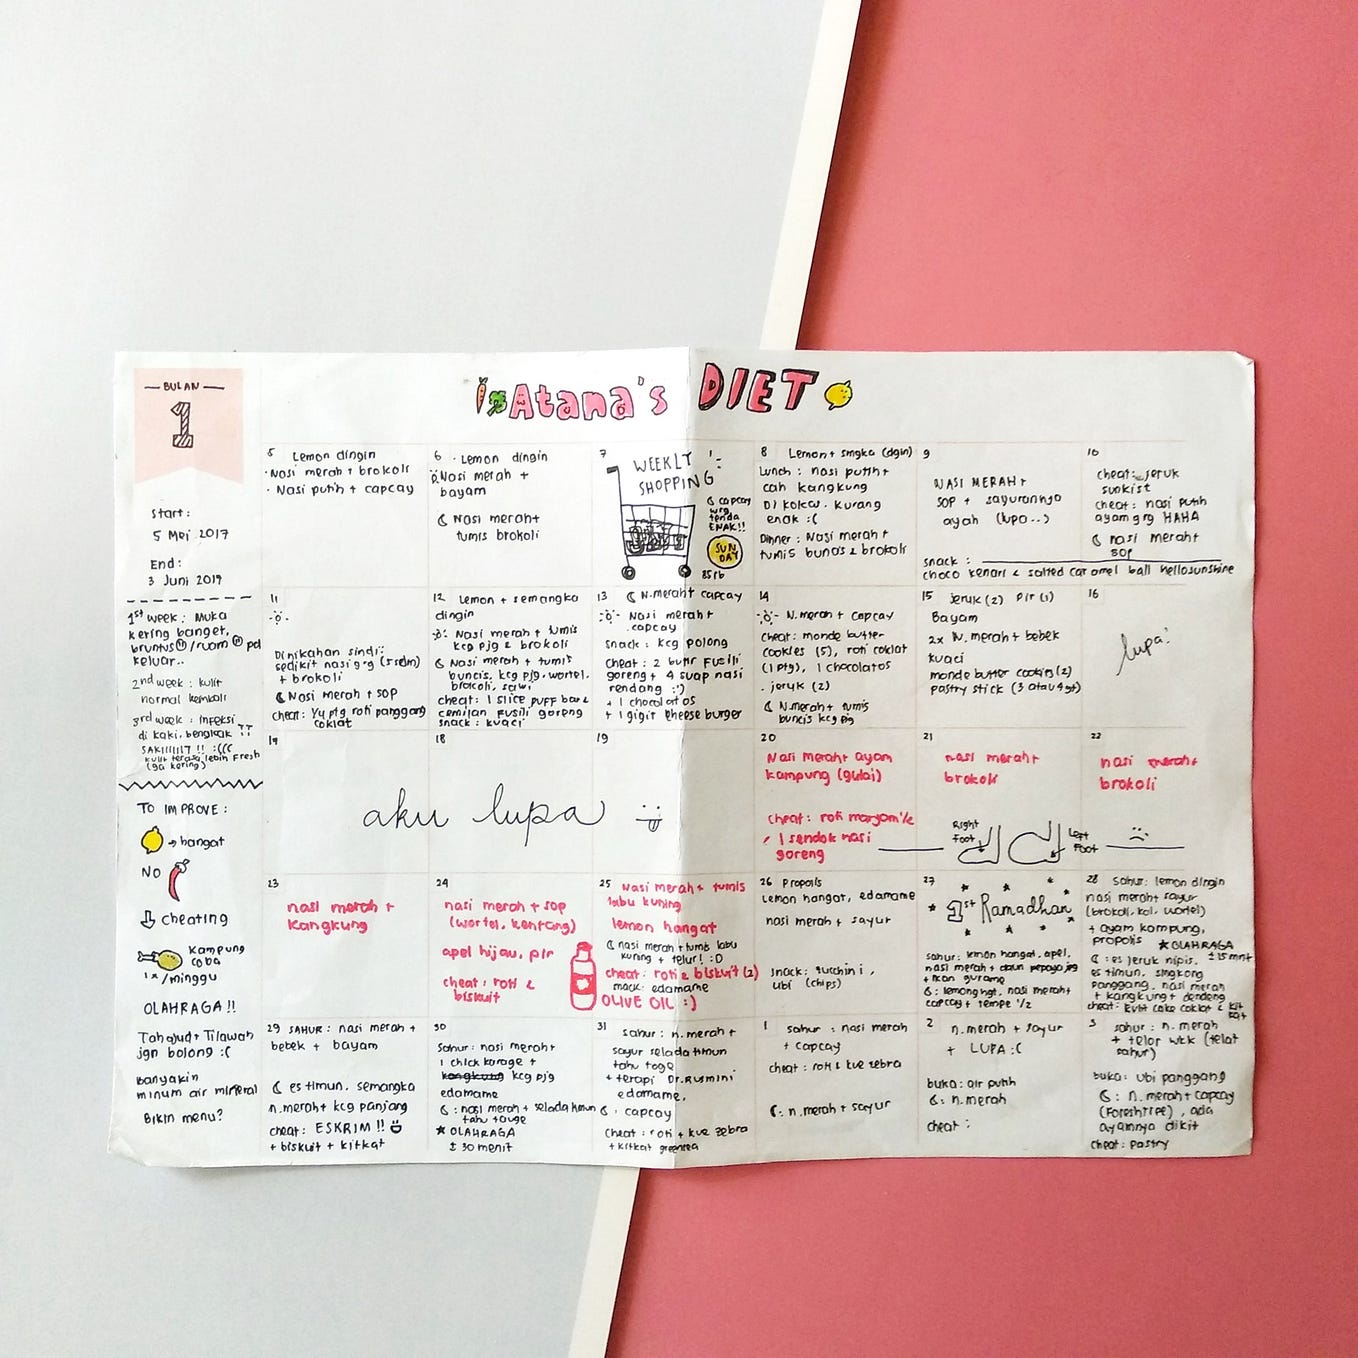 BULAN
1
Atana's DIET
start:
5 Mei 2017
End:
3 Juni 2017
1st week: muka
kering banget,
bruntus / ruam pd
keluar..
2nd week: kulit
normal kembali
3rd week: infeksi
di kaki, bengkak
SAKIIIIIT!! :(((
kulit terasa lebih fresh
(ga kering)
TO IMPROVE:
→ hangat
NO
cheating
kampung
coba
1x/minggu
OLAHRAGA!!
Tahajud + Tilawah
jgn bolong :(
Banyakin
minum air mineral
Bikin menu?
5 Lemon dingin
· Nasi merah + brokoli
· Nasi putih + capcay
6 · Lemon dingin
Nasi merah +
bayam
Nasi merah +
tumis brokoli
7
WEEKLY
SHOPPING
capcay
wrg
tenda
ENAK!!
SUN
DAY
85rb
8 Lemon + smgka (dgin)
Lunch: nasi putih +
cah kangkung
Di kokas. kurang
enak :(
Dinner: Nasi merah +
tumis buncis & brokoli
9
NASI MERAH +
SOP + sayurannya
ayah (lupa..)
10
cheat: jeruk
sunkist
cheat: nasi putih
ayam grg HAHA
nasi merah +
sop
snack:
choco kenari & salted caramel ball hellosunshine
11
Dinikahan sindi:
sedikit nasi grg (5 sdm)
+ brokoli
Nasi merah + sop
cheat: 1/4 ptg roti panggang
coklat
12 Lemon + semangka
dingin
Nasi merah + tumis
kcg pjg & brokoli
Nasi merah + tumis
buncis, kcg pjg, wortel,
brokoli, sawi
cheat: 1 slice puff bar &
cemilan fusili goreng
snack: kuaci
13 N. merah + capcay
Nasi merah +
capcay
snack: kcg polong
cheat: 2 butir fusili
goreng + 4 suap nasi
rendang :')
+ 1 chocolatos
+ 1 gigit cheese burger
14
N. merah + capcay
cheat: monde butter
cookies (5), roti coklat
(1 ptg), 1 chocolatos
. jeruk (2)
N. merah + tumis
buncis kcg pjg
15 jeruk (2) pir (1)
Bayam
2x N. merah + bebek
kuaci
monde butter cookies (2)
pastry stick (3 atau 4 gt)
16
lupa!
17
18
19
aku lupa
20
Nasi merah + ayam
kampung (gulai)
cheat: roti maryam 1/2
1 sendok nasi
goreng
21
nasi merah +
brokoli
Right
Foot
Left
Foot
22
nasi merah +
brokoli
23
nasi merah +
kangkung
24
nasi merah + sop
(wortel, kentang)
apel hijau, pir
cheat: roti &
biskuit
25 nasi merah + tumis
labu kuning
lemon hangat
nasi merah + tumis labu
kuning + telur! :D
cheat: roti & biskuit (2)
snack: edamame
OLIVE OIL :)
26 Propolis
Lemon hangat, edamame
nasi merah + sayur
snack: zucchini,
ubi (chips)
27
1st Ramadhan
sahur: lemon hangat, apel,
nasi merah + daun pepaya jpg
+ ikan gurame
: lemong hgt, nasi merah +
capcay + tempe 1/2
28 sahur: lemon dingin
nasi merah + sayur
(brokoli, kol, wortel)
+ ayam kampung,
propolis
OLAHRAGA
± 15 mnt
: es jeruk nipis,
es timun, singkong
panggang, nasi merah
+ kangkung + dendeng
cheat: kulit cake coklat & kit
kat
29 SAHUR: nasi merah +
bebek + bayam
es timun, semangka
n. merah + kcg panjang
cheat: ESKRIM!!
+ biskuit + kitkat
30
Sahur: nasi merah +
1 chick karage +
kangkung kcg pjg
edamame
: nasi merah + selada timun
tahu tauge
OLAHRAGA
± 30 menit
31 sahur: n. merah +
sayur selada timun
tahu toge
+ terapi Dr. Rusmini
edamame,
capcay
cheat: roti + kue zebra
+ kitkat greentea
1 sahur: nasi merah
+ capcay
cheat: roti & kue zebra
: n. merah + sayur
2 n. merah + sayur
+ LUPA :(
buka: air putih
: n. merah
cheat:
3 sahur: n. merah
+ telor wkk (telat
sahur)
buka: ubi panggang
: n. merah + capcay
(Foreshtree), ada
ayamnya dikit
cheat: pastry